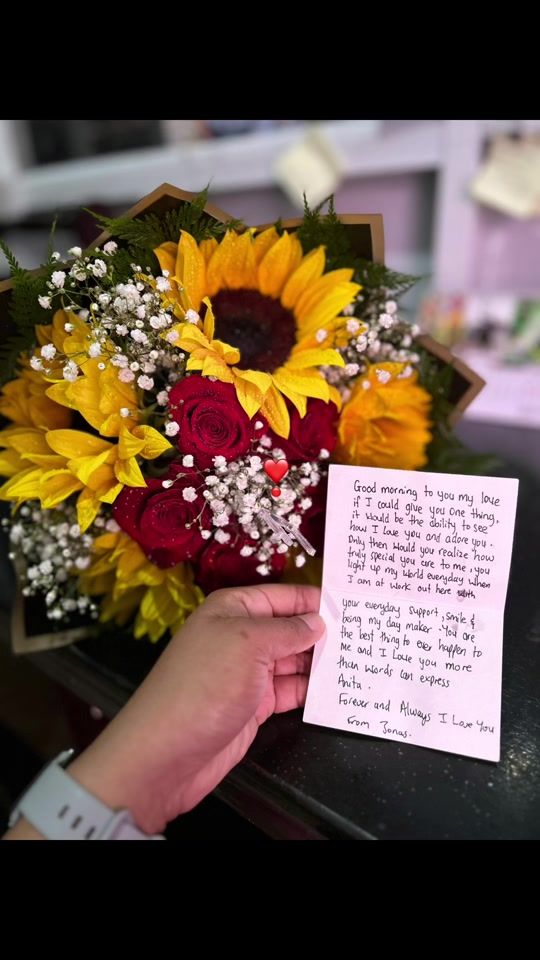 Good morning to you my love
if I could give you one thing,
it would be the ability to see
how I love you and adore you.
Only then would you realize how
truly special you are to me, you
light up my world everyday when
I am at work out here with
your everyday support, smile &
being my day maker. You are
the best thing to ever happen to
me and I Love you more
than words can express
Anita.
Forever and Always I Love You
From Jonas.